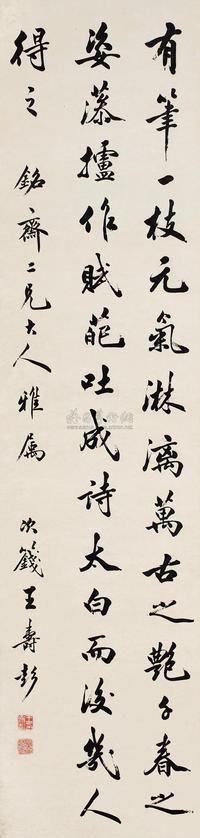 有筆一枝元氣淋漓萬古之艷千春之
姿藻攄作賦葩吐成詩太白而後幾人
得之
銘齋二兄大人雅屬
次籛王壽彭